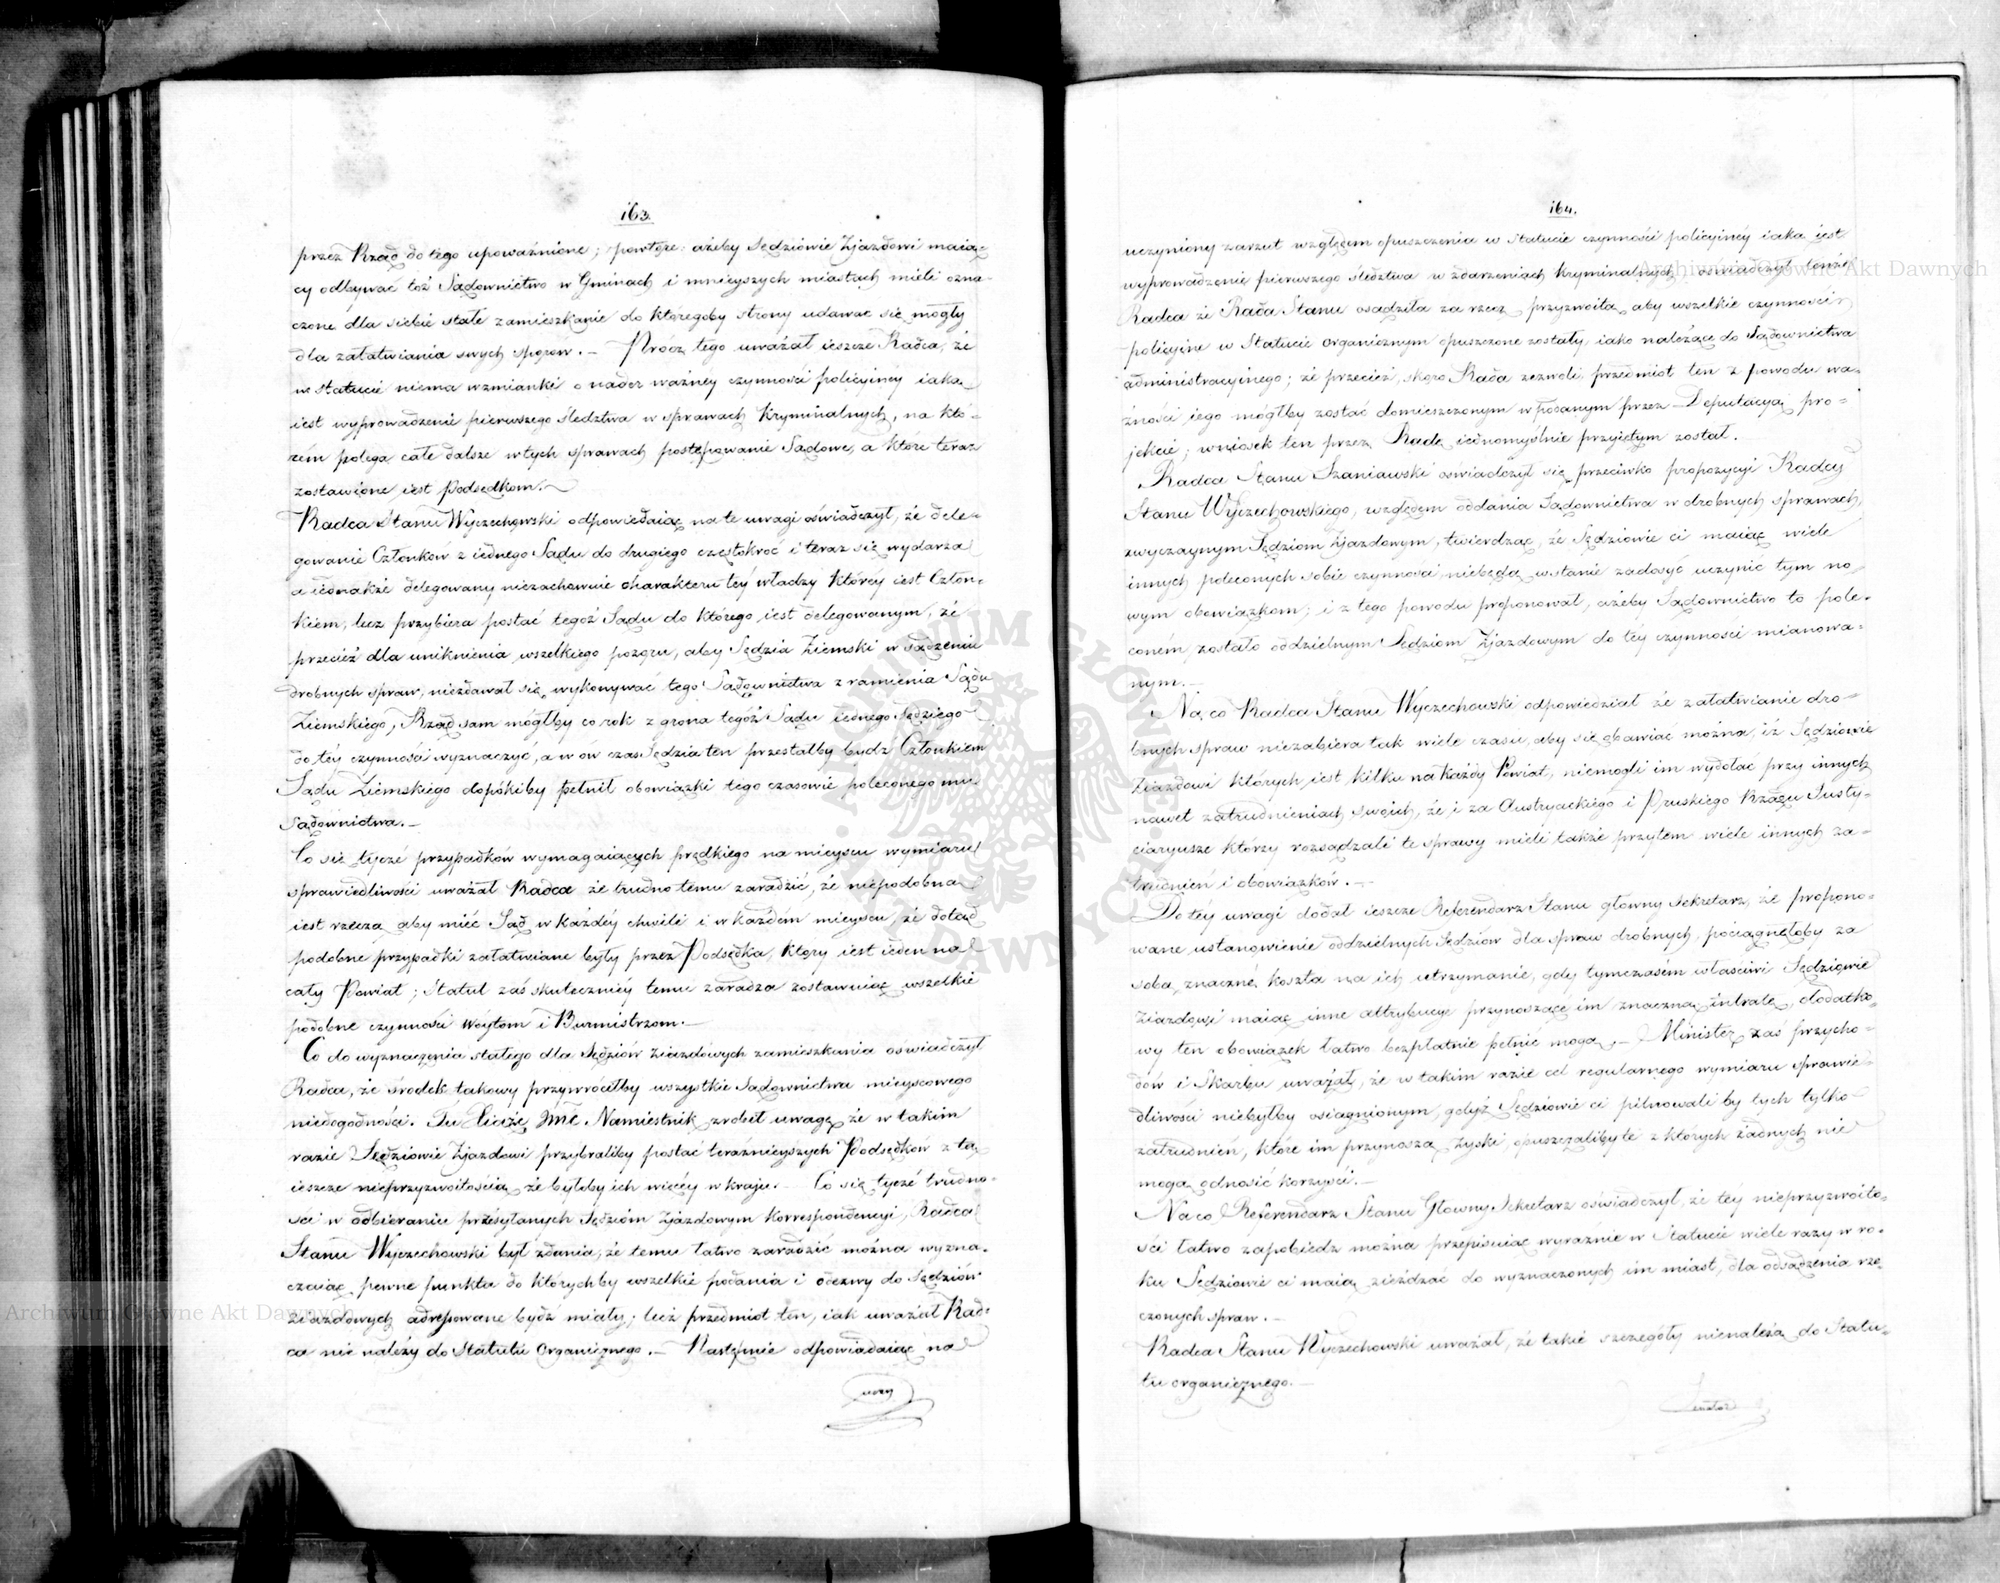 163.
przez Rząd do tego upoważnione; powtóre: ażeby Sędziowie Zjazdowi maiąc
cy odbywać toż Sądownictwo w Gminach i mnieyszych miastach mieli ozna-
czone dla siebie stałe zamieszkanie do któregoby strony udawać się mogły
dla załatwiania swych sporow. — Procz tego uważał ieszcze Radca, że
w statucie niema wzmianki o nader ważney czynności policyiney iaką
iest wyprowadzenie pierwszego śledztwa w sprawach kryminalnych, na któ-
rém polega całe dalsze w tych sprawach postępowanie Sądowe, a które teraz
zostawione iest Podsędkom. —
Radca Stanu Wyczechowski odpowiedaiąc na te uwagi oświadczył, że dele-
gowanie Członków z iednego Sądu do drugiego częstokroć i teraz się wydarza
a iednakże delegowany niezachowuie charakteru tey władzy którey iest Człon-
kiem, lecz przybiera postać tegoż Sądu do którego iest delegowanym, że
przecież dla uniknienia wszelkiego pozoru, aby Sędzia Ziemski w sądzeniu
drobnych spraw, niezdawał się wykonywać tego Sądownictwa z ramienia Sądu
Ziemskiego, Rząd sam mógłby co rok z grona tegoż Sądu iednego Sędziego
do téy czynności wyznaczyć, a w ów czas Sędzia ten przestałby bydź Członkiem
Sądu Ziemskiego dopókiby pełnił obowiązki tego czasowie poleconego mu
Sądownictwa. —
Co się tycze przypadków wymagaiących prędkiego na mieyscu wymiaru
sprawiedliwości uważał Radca że trudno temu zaradzić, że niepodobną
iest rzeczą aby mieć Sąd w każdey chwili i w każdém mieyscu, że dotąd
podobne przypadki załatwiane były przez Podsędka, który iest ieden na
cały Powiat; Statut zaś skuteczniey temu zaradza zostawuiąc wszelkie
podobne czynności Woytom i Burmistrzom. —
Co do wyznaczenia stałego dla Sędziów ziazdowych zamieszkania oświadczył
Radca, że środek takowy przywróciłby wszystkie Sądownictwa mieyscowego
niedogodności. Tu Xiąże Jmć Namiestnik zrobił uwagę, że w takim
razie Sędziowie Zjazdowi przybraliby postać teraźnieyszych Podsędków z tą
ieszcze nieprzyzwoitością, że byłoby ich więcey w kraju. — Co się tycze trudno-
ści w odbieraniu przesyłanych Sędziom Zjazdowym korrespondencyi, Radca
Stanu Wyczechowski był zdania, że temu łatwo zaradzić można wyzna-
czaiąc pewne punkta do którychby wszelkie podania i odezwy do Sędziów
Ziazdowych adresowane bydź miały; lecz przedmiot ten, iak uważał Rad-
ca nie należy do Statutu Organicznego. — Następnie odpowiadaiąc na
uczy
164.
uczyniony zarzut względem opuszczenia w statucie czynności policyiney iaka iest
wyprowadzenie pierwszego śledztwa w zdarzeniach kryminalnych oświadczył tenże
Radca że Rada Stanu osądziła za rzecz przyzwoitą, aby wszelkie czynności
policyine w Statucie organicznym opuszczone zostały, iako należące do Sądownictwa
administracyinego; że przecież, skoro Rada zezwoli, przedmiot ten z powodu wa-
żności iego mógłby zostać domieszczonym w posanym przez Deputacyą pro-
jekcie; wniosek ten przez Radę iednomyślnie przyiętym został.
Radca Stanu Szaniawski oświadczył się przeciwko propozycyi Radcy
Stanu Wyczechowskiego, względem oddania Sądownictwa w drobnych sprawach,
zwyczaynym Sędziom Zjazdowym, twierdząc, że Sędziowie ci maiąc wiele
innych poleconych sobie czynności niebędą w stanie zadosyć uczynić tym no-
wym obowiązkom; i z tego powodu proponował, ażeby Sądownictwo to pole-
coném zostało oddzielnym Sędziom Zjazdowym do téy czynności mianowa-
nym. —
Na co Radca Stanu Wyczechowski odpowiedział że załatwianie dro-
bnych spraw niezabiera tak wiele czasu, aby się obawiać można, iż Sędziowie
Ziazdowi których iest kilku na każdy Powiat, niemogli im wydołać przy innych
nawet zatrudnieniach swoich, że i za Austryackiego i Pruskiego Rządu Justy-
ciaryusze którzy rozsądzali te sprawy mieli także przytem wiele innych za-
trudnień i obowiązków. —
Do téy uwagi dodał ieszcze Referendarz Stanu główny Sekretarz, że propono-
wane ustanowienie oddzielnych Sędziów dla spraw drobnych, pociągnęłoby za
sobą znaczne koszta na ich utrzymanie, gdy tymczasem właściwi Sędziowie
Ziazdowi maiąc inne attrybucye przynoszące im znaczną intratę, dodatko-
wy ten obowiązek łatwo bezpłatnie pełnić mogą. — Minister zaś Przycho-
dów i Skarbu uważał, że w takim razie cel regularnego wymiaru sprawie-
dliwości niebyłby osiągnionym, gdyż Sędziowie ci pilnowaliby tych tylko
zatrudnień, które im przynoszą zyski, opuszczaliby te z których żadnych nie
mogą odnosić korzyści. —
Na co Referendarz Stanu Główny Sekretarz oświadczył, że tey nieprzyzwoito-
ści łatwo zapobiedz można przepisuiąc wyraznie w Statucie wiele razy w ro-
ku Sędziowie ci maią zieżdzać do wyznaczonych im miast, dla odsądzenia rze-
czonych spraw. —
Radca Stanu Wyczechowski uważał, że takie szczegóły nienależą do Statu-
tu organicznego. —
Senator
ARCHIWUM GŁÓWNE AKT DAWNYCH
Archiwum Główne Akt Dawnych
Archiwum Główne Akt Dawnych